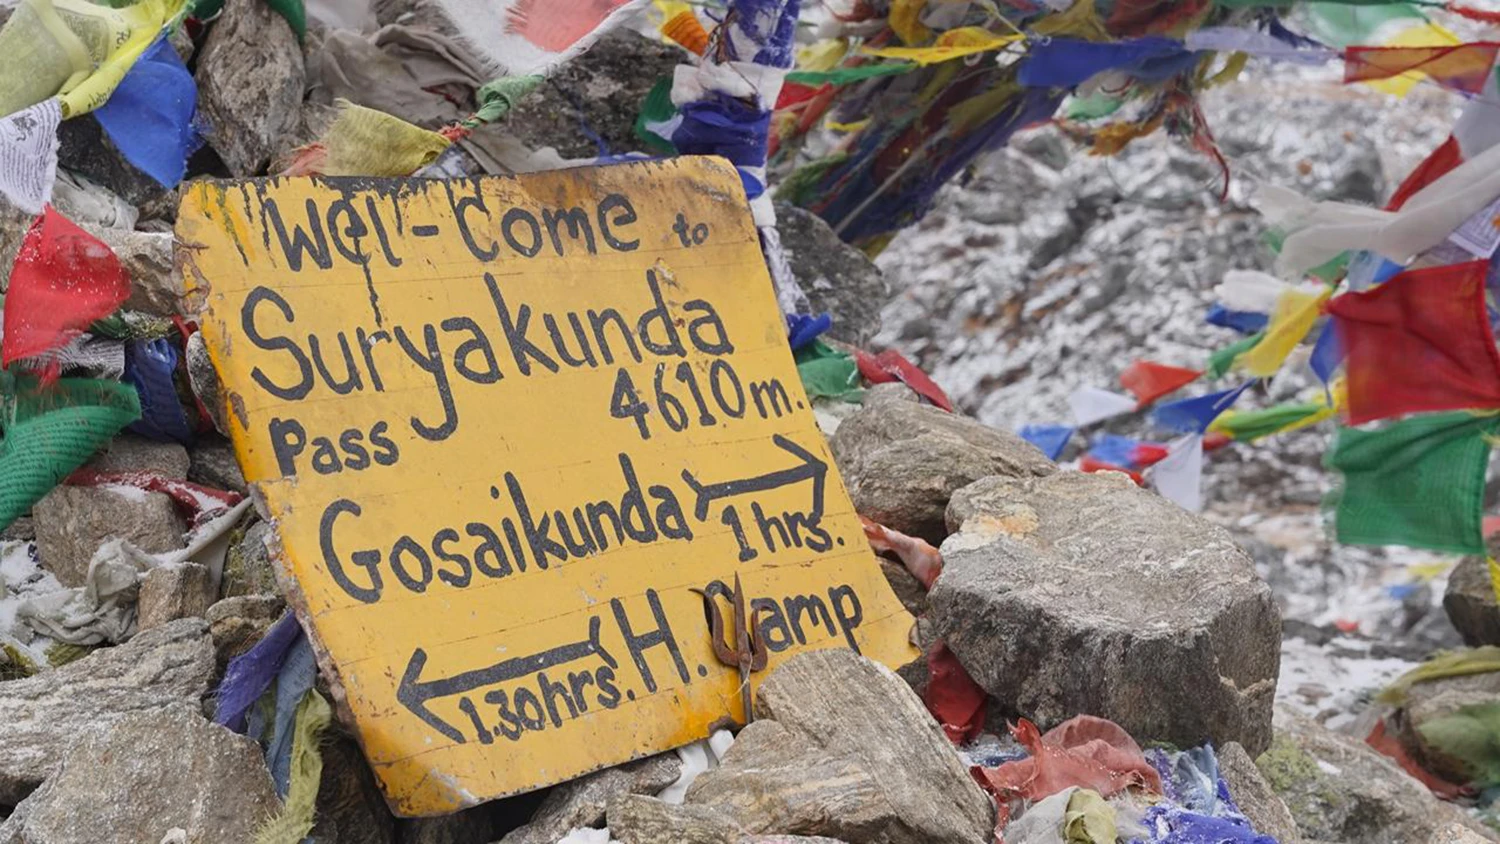 Wel-Come to
Suryakunda
Pass 4610m.
Gosaikunda
1hrs.
H. Camp
1.30hrs.